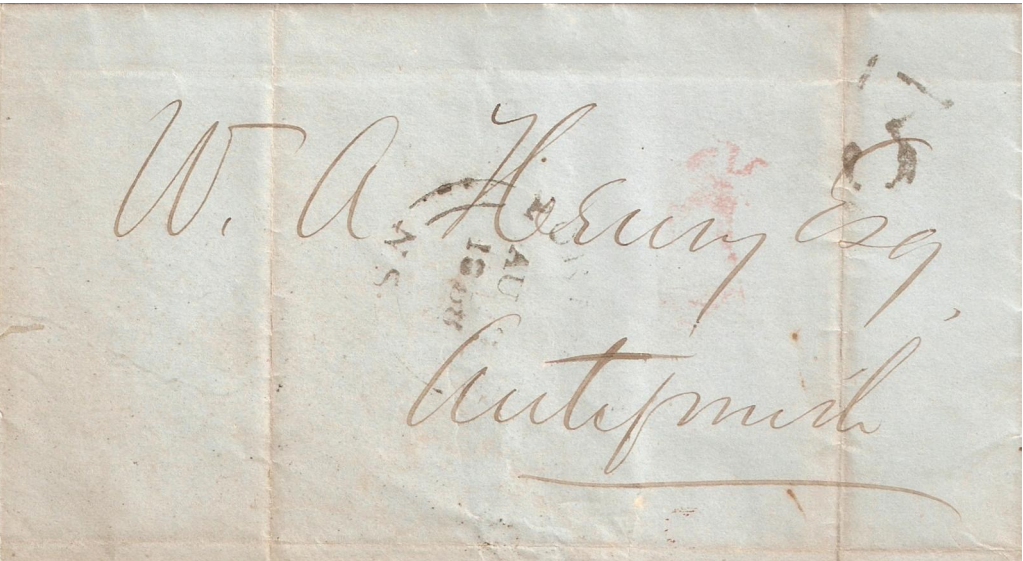 W. A Henry Esq,
Antigonish
5
AU
18
N.S.